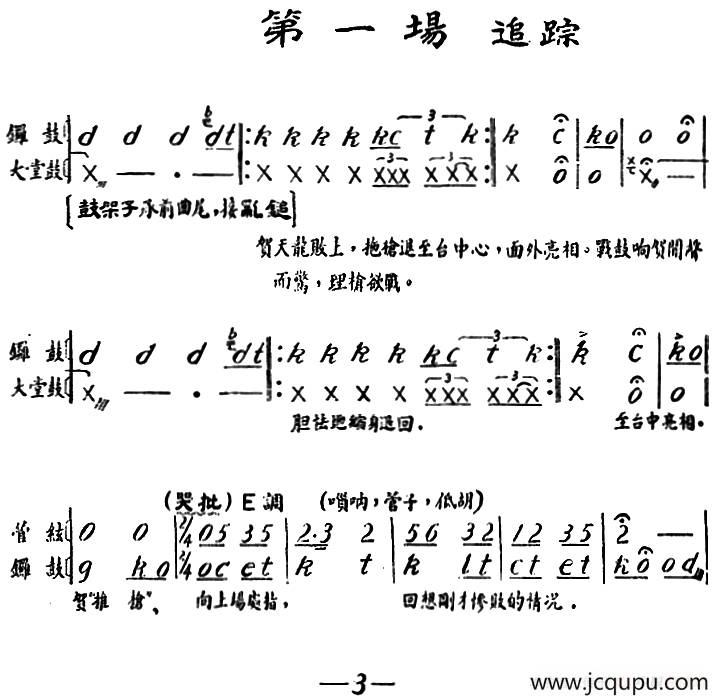 第一場 追踪
鑼鼓 d d d dt : k k k k kc t k : k c | ko | o o
大堂鼓 X — · — : X X X X XXX XXX : X o | o | X —
[鼓架子承前曲尾，接亂鎚]
贺天龍敗上，拖槍退至台中心，面外亮相。戰鼓响贺聞聲
而驚，理槍欲戰。
鑼鼓 d d d dt : k k k k kc t k : k c | ko
大堂鼓 X — · — : X X X X XXX XXX : X o | o
胆怯地縮身退回. 至台中亮相。
(哭批) E調 (嗩呐，管子，低胡)
管絃 0 0 | 2/4 05 35 | 2·3 2 | 56 32 | 12 35 | 2 —
鑼鼓 g ko | 2/4 oc et | k t | k lt | ct et | ko od
贺"推槍"、 向上場處指， 回想剛才慘敗的情况.
—3—
www.jcqupu.com